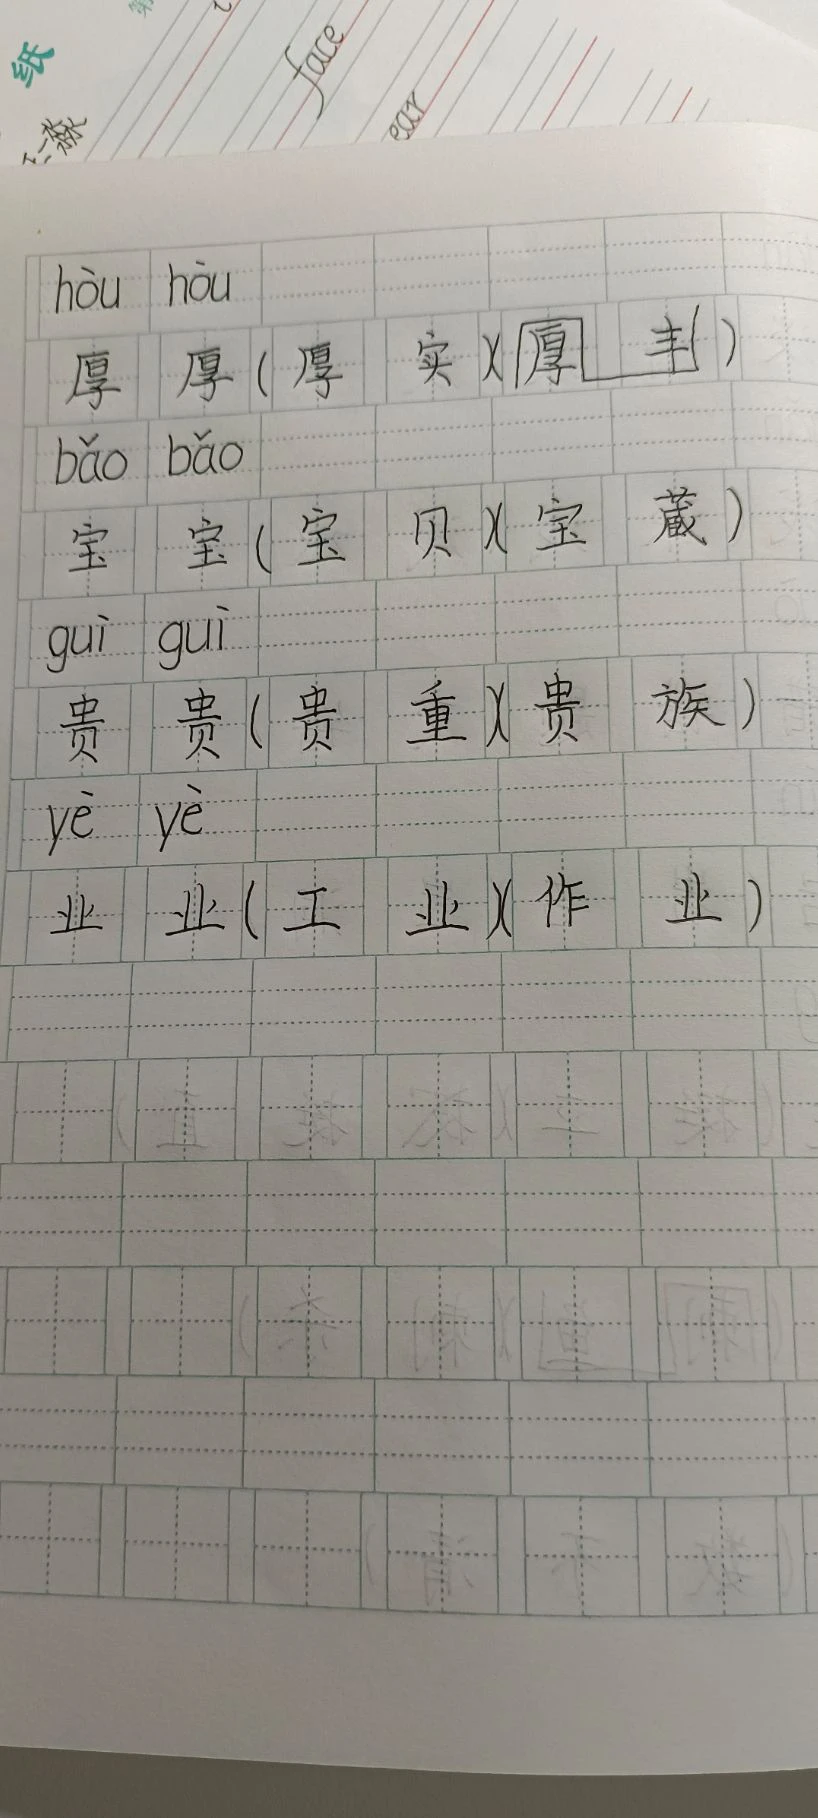 纸
face
ear
hòu hòu
厚 厚(厚 实)(厚 丰)
bǎo bǎo
宝 宝(宝 贝)(宝 藏)
guì guì
贵 贵(贵 重)(贵 族)
yè yè
业 业(工 业)(作 业)